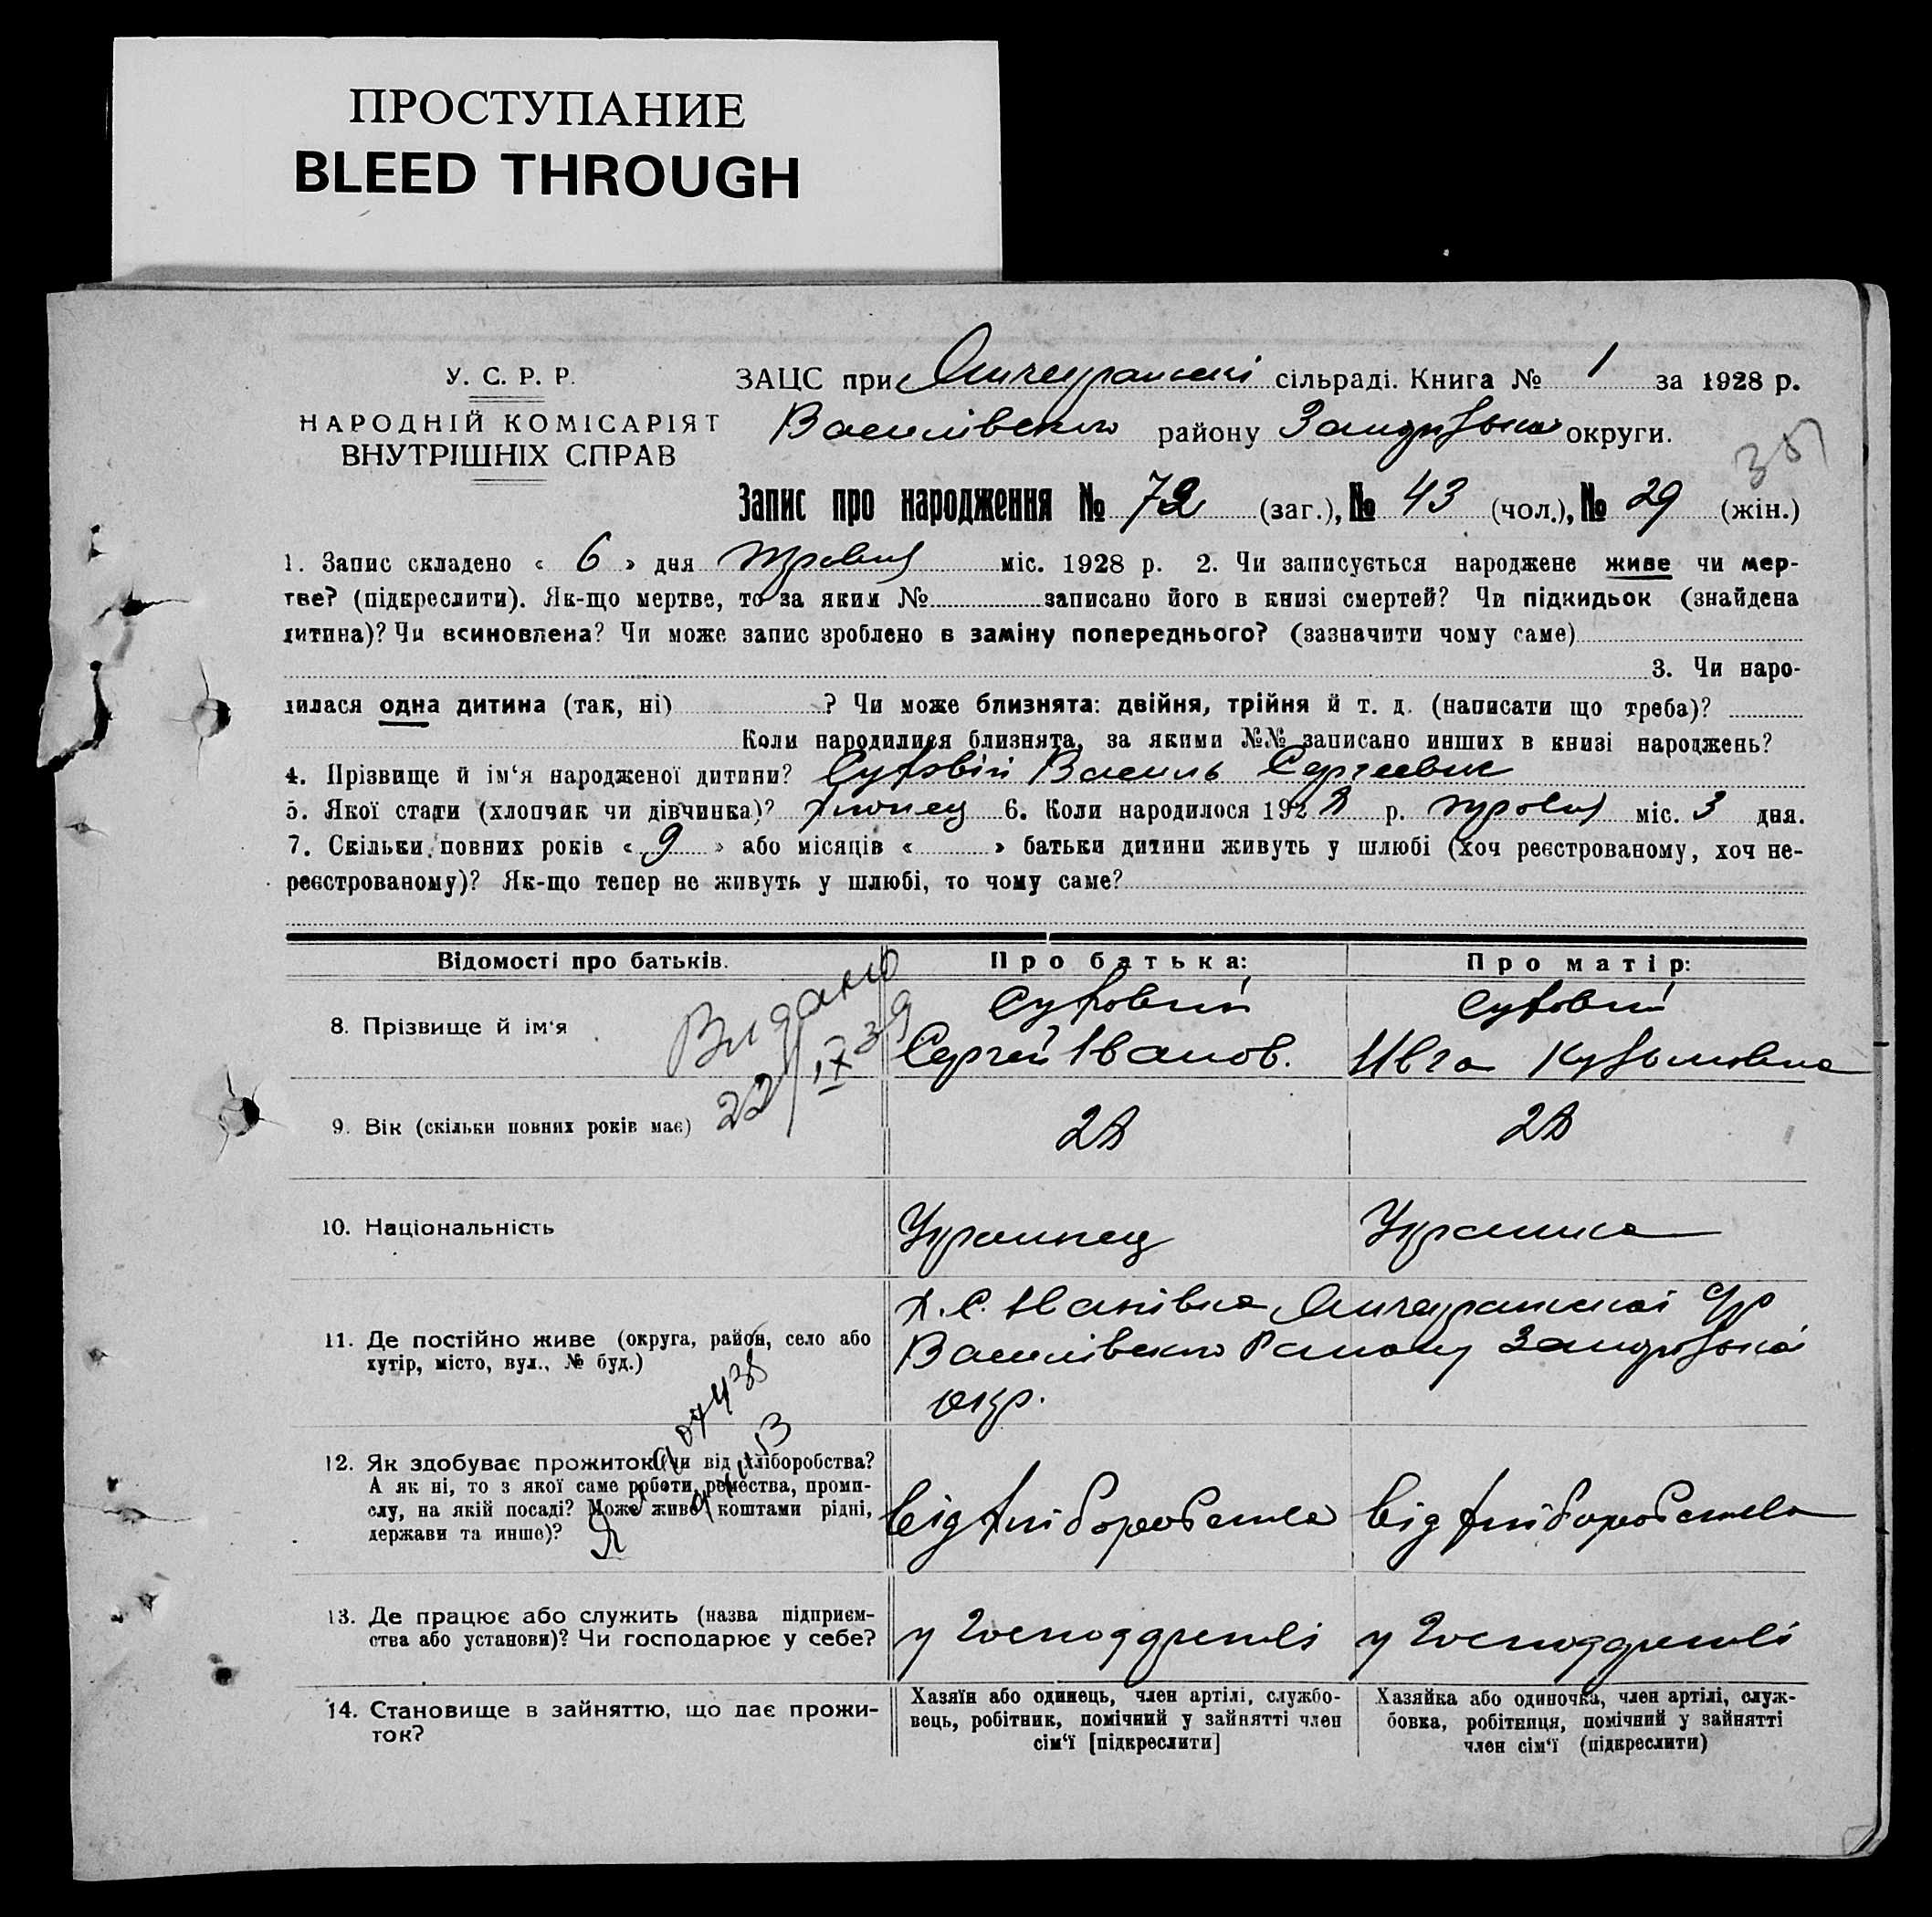 ПРОСТУПАНИЕ
BLEED THROUGH
У. С. Р. Р.
НАРОДНІЙ КОМІСАРІЯТ
ВНУТРІШНІХ СПРАВ
ЗАЦС при сільраді. Книга № 1 за 1928 р.
Василівсько району округи.
35
Запис про народження № 72 (заг.), № 43 (чол.), № 29 (жін.)
1. Запис складено « 6 » дня травня міс. 1928 р. 2. Чи записується народжене живе чи мер-
тве? (підкреслити). Як-що мертве, то за яким № записано його в книзі смертей? Чи підкидьок (знайдена
дитина)? Чи всиновлена? Чи може запис зроблено в заміну попереднього? (зазначити чому саме)
3. Чи наро-
дилася одна дитина (так, ні) ? Чи може близнята: двійня, трійня й т. д. (написати що треба)?
Коли народилися близнята, за якими №№ записано инших в книзі народжень?
4. Прізвище й ім‘я народженої дитини? Суховій Василь Сергеевич
5. Якої стати (хлопчик чи дівчинка)? хлопец 6. Коли народилося 1928 р. травня міс. 3 дня.
7. Скільки повних років « 9 » або місяців « » батьки дитини живуть у шлюбі (хоч реєстрованому, хоч не-
реєстрованому)? Як-що тепер не живуть у шлюбі, то чому саме?
Відомості про батьків. Про батька: Про матір:
Видано
22/IX 39
8. Прізвище й ім‘я
Суховій
Сергей Іванов.
Суховій
Ивга Кузьмовна
9. Вік (скільки повних років має) 28 28
10. Національність Украинец Украинка
11. Де постійно живе (округа, район, село або
хутір, місто, вул., № буд.)
Василівсько Району
окр.
12. Як здобуває прожиток чи від хліборобства?
А як ні, то з якої саме роботи, ремества, проми-
слу, на якій посаді? Може живе коштами рідні,
держави та инше)?
від хліборобства від хліборобства
13. Де працює або служить (назва підприєм-
ства або установи)? Чи господарює у себе?
14. Становище в зайняттю, що дає прожи-
ток?
Хазяїн або одинець, член артілі, службо-
вець, робітник, помічний у зайнятті член
сім‘ї [підкреслити]
Хазяйка або одиночка, член артілі, служ-
бовка, робітниця, помічний у зайнятті
член сім‘ї (підкреслити)